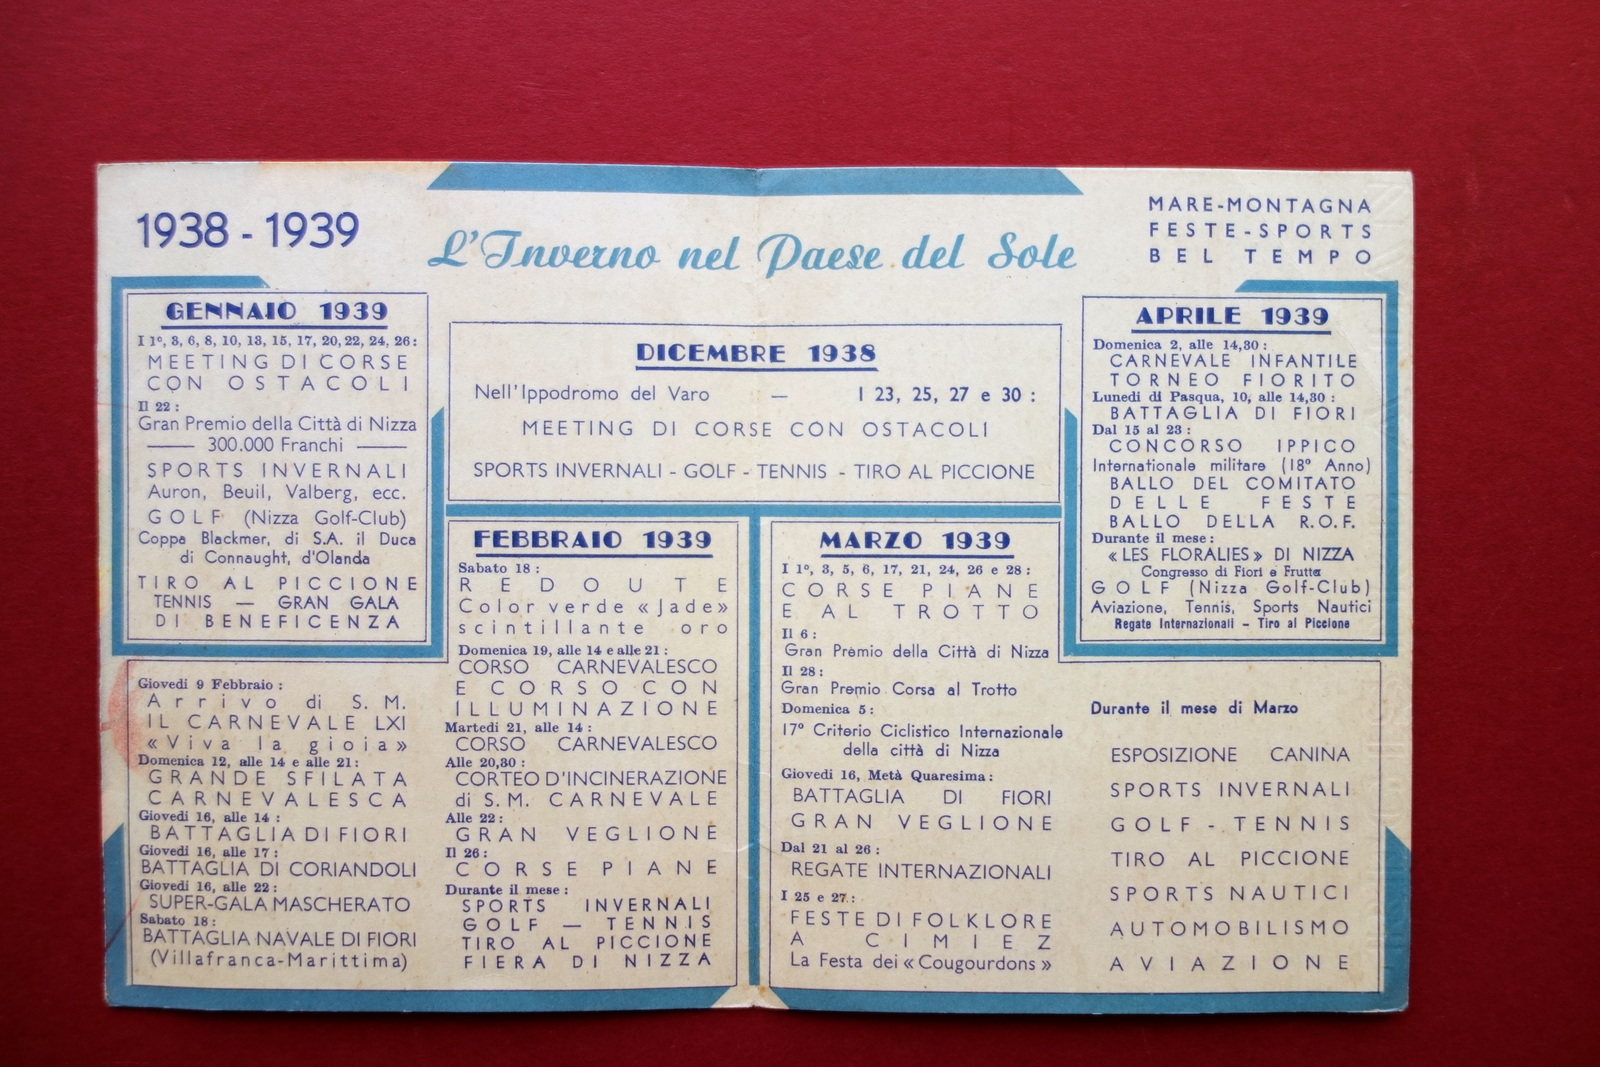 1938 - 1939
L'Inverno nel Paese del Sole
MARE-MONTAGNA
FESTE-SPORTS
BEL TEMPO
GENNAIO 1939
I 1º, 3, 6, 8, 10, 13, 15, 17, 20, 22, 24, 26 :
MEETING DI CORSE
CON OSTACOLI
Il 22 :
Gran Premio della Città di Nizza
300.000 Franchi
SPORTS INVERNALI
Auron, Beuil, Valberg, ecc.
GOLF (Nizza Golf-Club)
Coppa Blackmer, di S.A. il Duca
di Connaught, d'Olanda
TIRO AL PICCIONE
TENNIS — GRAN GALA
DI BENEFICENZA
DICEMBRE 1938
Nell'Ippodromo del Varo — I 23, 25, 27 e 30 :
MEETING DI CORSE CON OSTACOLI
SPORTS INVERNALI - GOLF - TENNIS - TIRO AL PICCIONE
APRILE 1939
Domenica 2, alle 14,30 :
CARNEVALE INFANTILE
TORNEO FIORITO
Lunedi di Pasqua, 10, alle 14,30 :
BATTAGLIA DI FIORI
Dal 15 al 23 :
CONCORSO IPPICO
Internationale militare (18º Anno)
BALLO DEL COMITATO
DELLE FESTE
BALLO DELLA R.O.F.
Durante il mese :
« LES FLORALIES » DI NIZZA
Congresso di Fiori e Frutta
GOLF (Nizza Golf-Club)
Aviazione, Tennis, Sports Nautici
Regate Internazionali – Tiro al Piccione
Giovedi 9 Febbraio :
Arrivo di S. M.
IL CARNEVALE LXI
«Viva la gioia»
Domenica 12, alle 14 e alle 21 :
GRANDE SFILATA
CARNEVALESCA
Giovedi 16, alle 14 :
BATTAGLIA DI FIORI
Giovedi 16, alle 17 :
BATTAGLIA DI CORIANDOLI
Giovedi 16, alle 22 :
SUPER-GALA MASCHERATO
Sabato 18 :
BATTAGLIA NAVALE DI FIORI
(Villafranca-Marittima)
FEBBRAIO 1939
Sabato 18 :
REDOUTE
Color verde «Jade»
scintillante oro
Domenica 19, alle 14 e alle 21 :
CORSO CARNEVALESCO
E CORSO CON
ILLUMINAZIONE
Martedi 21, alle 14 :
CORSO CARNEVALESCO
Alle 20,30 :
CORTEO D'INCINERAZIONE
di S.M. CARNEVALE
Alle 22 :
GRAN VEGLIONE
Il 26 :
CORSE PIANE
Durante il mese :
SPORTS INVERNALI
GOLF — TENNIS
TIRO AL PICCIONE
FIERA DI NIZZA
MARZO 1939
I 1º, 3, 5, 6, 17, 21, 24, 26 e 28 :
CORSE PIANE
E AL TROTTO
Il 6 :
Gran Premio della Città di Nizza
Il 28 :
Gran Premio Corsa al Trotto
Domenica 5 :
17º Criterio Ciclistico Internazionale
della città di Nizza
Giovedi 16, Metà Quaresima :
BATTAGLIA DI FIORI
GRAN VEGLIONE
Dal 21 al 26 :
REGATE INTERNAZIONALI
I 25 e 27 :
FESTE DI FOLKLORE
A CIMIEZ
La Festa dei « Cougourdons »
Durante il mese di Marzo
ESPOSIZIONE CANINA
SPORTS INVERNALI
GOLF - TENNIS
TIRO AL PICCIONE
SPORTS NAUTICI
AUTOMOBILISMO
AVIAZIONE